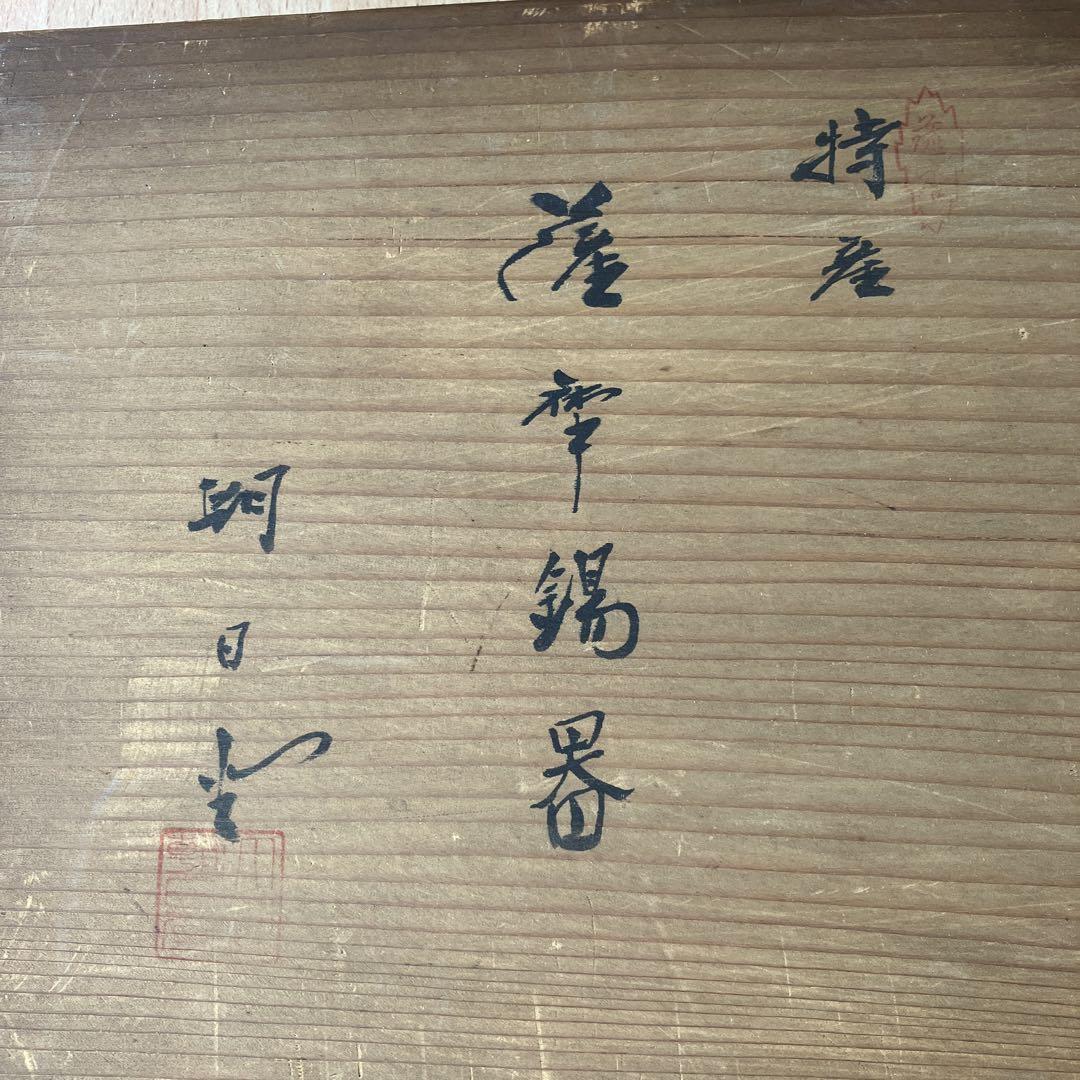 特産
薩摩錫器
朝日堂